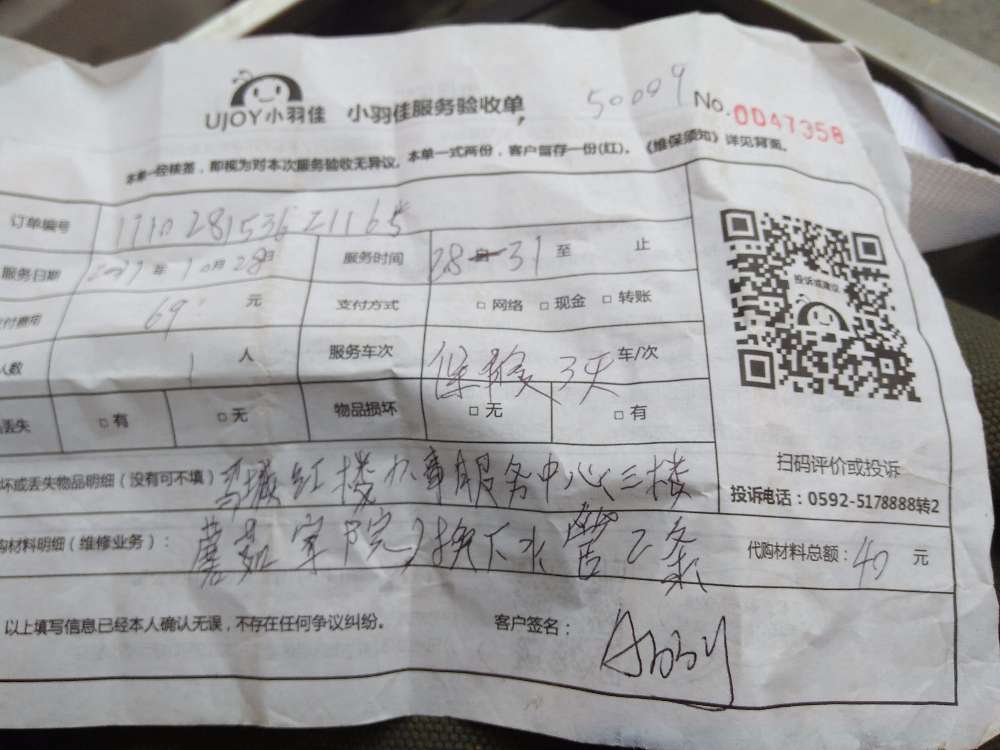 UJOY小羽佳 小羽佳服务验收单 50009 No.0047358
本单一经核签，即视为对本次服务验收无异议。本单一式两份，客户留存一份(红)。《维保须知》详见背面。
订单编号 171028153621165
服务日期 2017年10月28日 服务时间 28 31 至 止
付费用 69 元 支付方式 □ 网络 □ 现金 □ 转账
人数 1 人 服务车次 保修3天 车/次
丢失 □ 有 □ 无 物品损坏 □ 无 □ 有
投诉或建议
扫码评价或投诉
投诉电话：0592-5178888转2
坏或丢失物品明细（没有可不填） 红楼办事服务中心三楼
购材料明细（维修业务）： 蘑菇家院 换下水管2条 代购材料总额： 40 元
以上填写信息已经本人确认无误，不存在任何争议纠纷。 客户签名： Abby